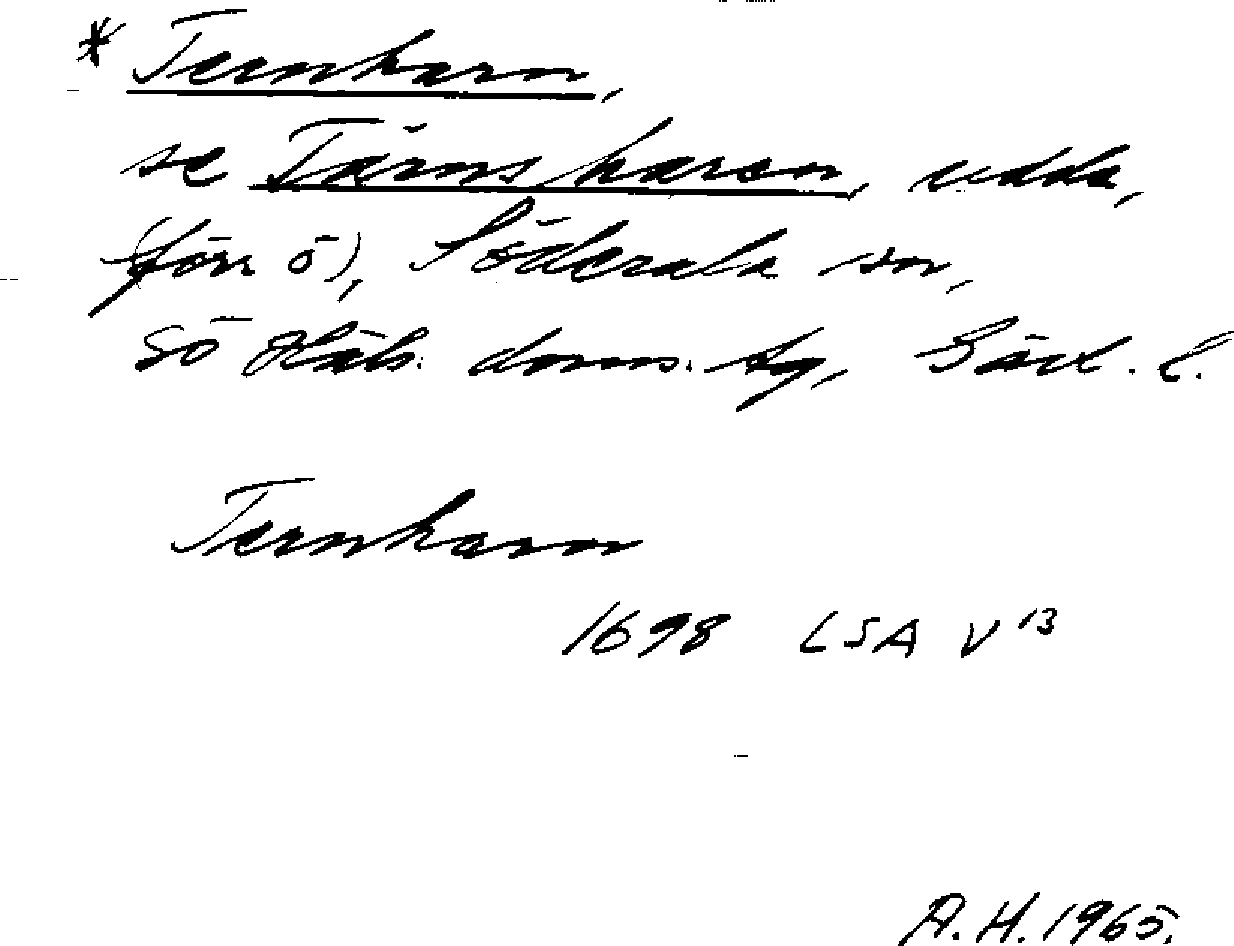 * Ternharn,
se Tärnsharen, udda,
(förr ö), Söderala sn,
Sö Häls. doms. tg, Gävl. l.
Ternharn
1698 LSA V 13
A.H. 1965.